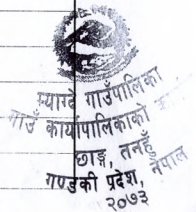 म्याग्दे गाउँपालिका
गाउँ कार्यपालिकाको
छाङ्ग, तनहुँ
गण्डकी प्रदेश, नेपाल
२०७३